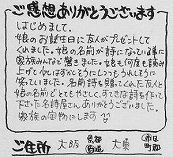 ご感想ありがとうございます
はじめまして。
娘のお誕生日に友人がプレゼントして
くれました。娘の名前が詩になっている事に
家族みんなで驚きました。娘も何度も読み
上げてくれますがとてもうれしそう
に笑っていました。名前詩を贈ってくれた友人と
娘の名前でとてもやさしくすてきな詩を作って
下さった名詩屋さん、ありがとうございました。
家族の宝物にします。
ご住所 大阪 都道府県 大東 市区町村